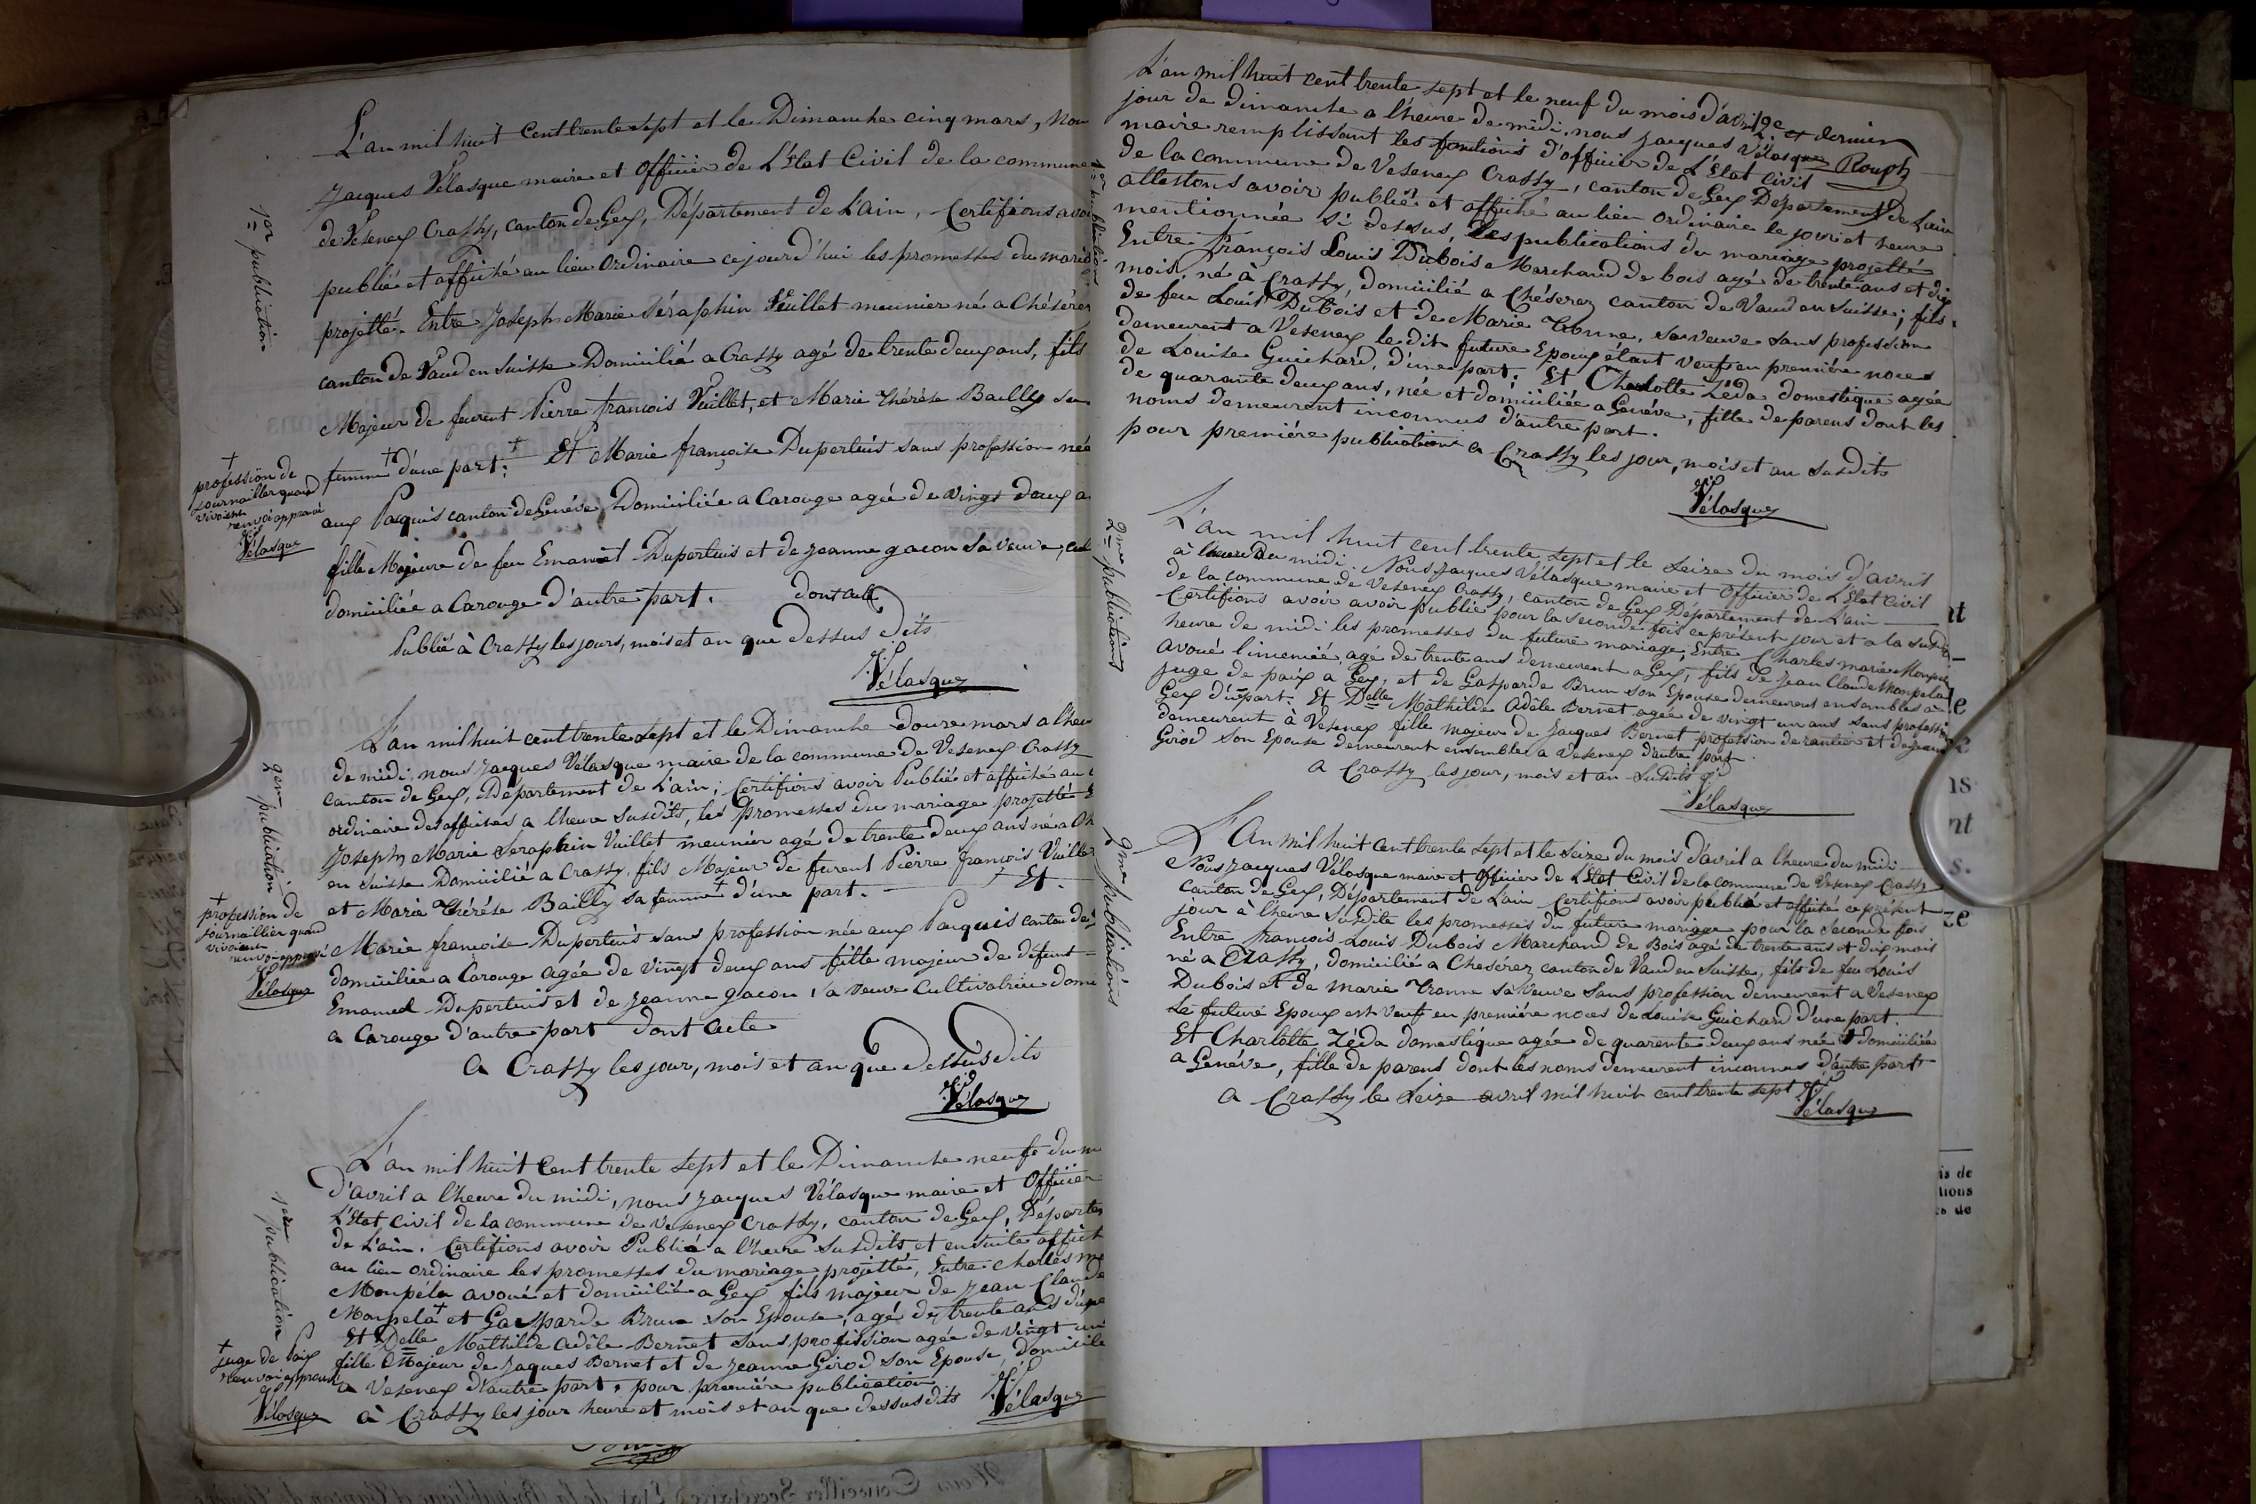 L'an mil huit cent trente sept et le Dimanche cinq mars, Nou
Jacques Vélasque maire et Officier de L'Etat Civil de la commune
de Veseney Crassy, canton de Gex, Département de L'ain, Certifions avoi
publié et affiché au lieu Ordinaire cejourd'hui les promesses du maria
projetté. Entre Joseph Marie Séraphin Vuillet meunier né a Chéséres
canton de Vaud en Suisse Domicilié a Crassy agé de trente deux ans, fils
Majeur de feurent Pierre françois Vuillet, et Marie Thérèse Bailly sa
femme + d'une part; + Et Marie françoise Dupertuis sans profession née
aux Paquis canton de Genéve, Domiciliée a Carouge agée de vingt deux a
fille Majeure de feu Emanuel Dupertuis et de Jeanne gacon Sa veuve, cul
domiciliée a Carouge d'autre part. dont acte
Publié à Crassy les jours, mois et an que dessus dits
Vélasque
1er publication
+ profession de
journaillier quand
vivoient
renvoi approuvé
Vélasque
L'an mil huit cent trente sept et le Dimanche douze mars a l'heu
de midi, nous Jacques Vélasque maire de la commune de Veseney Crassy
canton de Gex, Département de L'ain; Certifions avoir Publié et affiché au
ordinaire des affiches a l'heure Susdits, les Promesses du mariage projetté E
Joseph Marie Seraphin Vuillet meunier agé de trente deux ans né a Ch
en Suisse Domicilié a Crassy, fils Majeur de furent Pierre françois Vuillet
et Marie Thérése Bailly sa femme + d'une part. — Et
Marie francoise Dupertuis sans profession née aux Paquis canton de
domiciliée a Carouge agée de vingt deux ans fille majeur de défunt
Emanuel Dupertuis et de Jeanne gacon, sa veuve Cultivatrice domi
a Carouge d'autre part dont acte
a Crassy les jour, mois et an que dessus dits
Vélasque
2em publication
+ profession de
journaillier quand
vivoient
renvoi approuvé
Vélasque
L'an mil huit Cent trente sept et le Dimanche neuf du m
d'avril a l'heure du midi, nous Jacques Vélasque maire et Officier
L'Etat civil de la commune de Veseney Crassy, canton de Gex, Départem
de L'ain. Certifions avoir Publié a l'heure Susdits et ensuite affich
au lieu ordinaire les promesses du mariage projetté, Entre Charles m
Monpéla avoué et domicilié a Gex fils majeur de Jean Claude
Monpela + et Gasparde Brun son Epouse, agé de trente ans d'une
Et Delle Mathilde Adèle Bernet sans profession agée de vingt un
fille Majeur de Jaques Bernet et de Jeanne Girod son Epouse, domicile
a Veseney d'autre part, pour première publication
à Crassy les jour heure et mois et an que dessus dits Vélasque
1ere publication
+ juge de Paix
renvoi approuvé
Vélasque
2e et dernier
Rouph
L'an mil huit cent trente sept et le neuf du mois d'avril
jour de dimanche a l'heure de midi, nous Jacques Vélasque
maire remplissant les fonctions d'officier de L'Etat civil
de la commune de Veseney Crassy, canton de Gex Département de Lain
attestons avoir publié et affiché au lieu ordinaire le jour et heure
mentionnée si dessus, Les publications du mariage projetté
Entre françois Louis Dubois Marchand de bois agé de trente ans et dix
mois, né à Crassy, domicilié a Chéserex canton de Vaud en Suisse; fils
de feu Louis Dubois et de Marie Tronne, sa veuve sans profession
demeurent a Veseney le dit future Epoux étant veuf en première noces
de Louise Guichard, d'une part; Et Charlotte Zéda domestique agée
de quarante deux ans, née et domiciliée a Genéve, fille de parens dont les
noms demeurent inconnus d'autre part.
pour premiére publication a Crassy les jour, mois et an susdits
Vélasque
1er publication
L'an mil huit cent trente sept et le seize du mois d'avril
à l'heure du midi. Nous Jacques Vélasque maire et Officier de L'Etat civil
de la commune de Veseney Crassy, canton de Gex Département de L'ain
Certifions avoir avoir publié pour la seconde fois ce présent jour et a la susdit
heure de midi les promesses du future mariage; Entre Charles marie Monpela
avoué licencié, agé de trente ans demeurent a Gex, fils de Jean Claude Monpela
juge de paix a Gex, et de Gasparde Brun son Epouse demeurent ensembles a
Gex d'une part. Et Delle Mathilde Adèle Bernet agée de vingt un ans sans profession
demeurent à Veseney fille majeur de Jacques Bernet profession de rantier et de Jeanne
Girod son Epouse demeurent ensemble a Veseney d'autre part
a Crassy les jour, mois et an susdits
Vélasque
2me publications
L'An mil huit cent trente sept et le seize du mois d'avril a l'heure du midi
Nous Jacques Vélasque maire et Officier de L'Etat Civil de la commune de Veseney Crassy
canton de Gex, Département de L'ain Certifions avoir publié et affiché ce présent
jour à l'heure susdite les promesses du future mariage pour la seconde fois
Entre françois Louis Dubois Marchand de Bois agé de trente ans et dix mois
né a Crassy, domicilié a Chesérex canton de Vaud en Suisse, fils de feu Louis
Dubois et de Marie Tronne sa veuve sans profession demeurent a Veseney
Le future Epoux est veuf en première noces de Louise Guichard d'une part.
Et Charlotte Zéda domestique agée de quarante deux ans née & domiciliée
a Genéve, fille de parens dont les noms demeurent inconnus d'autre part
a Crassy le seize avril mil huit cent trente sept
Vélasque
2me publications